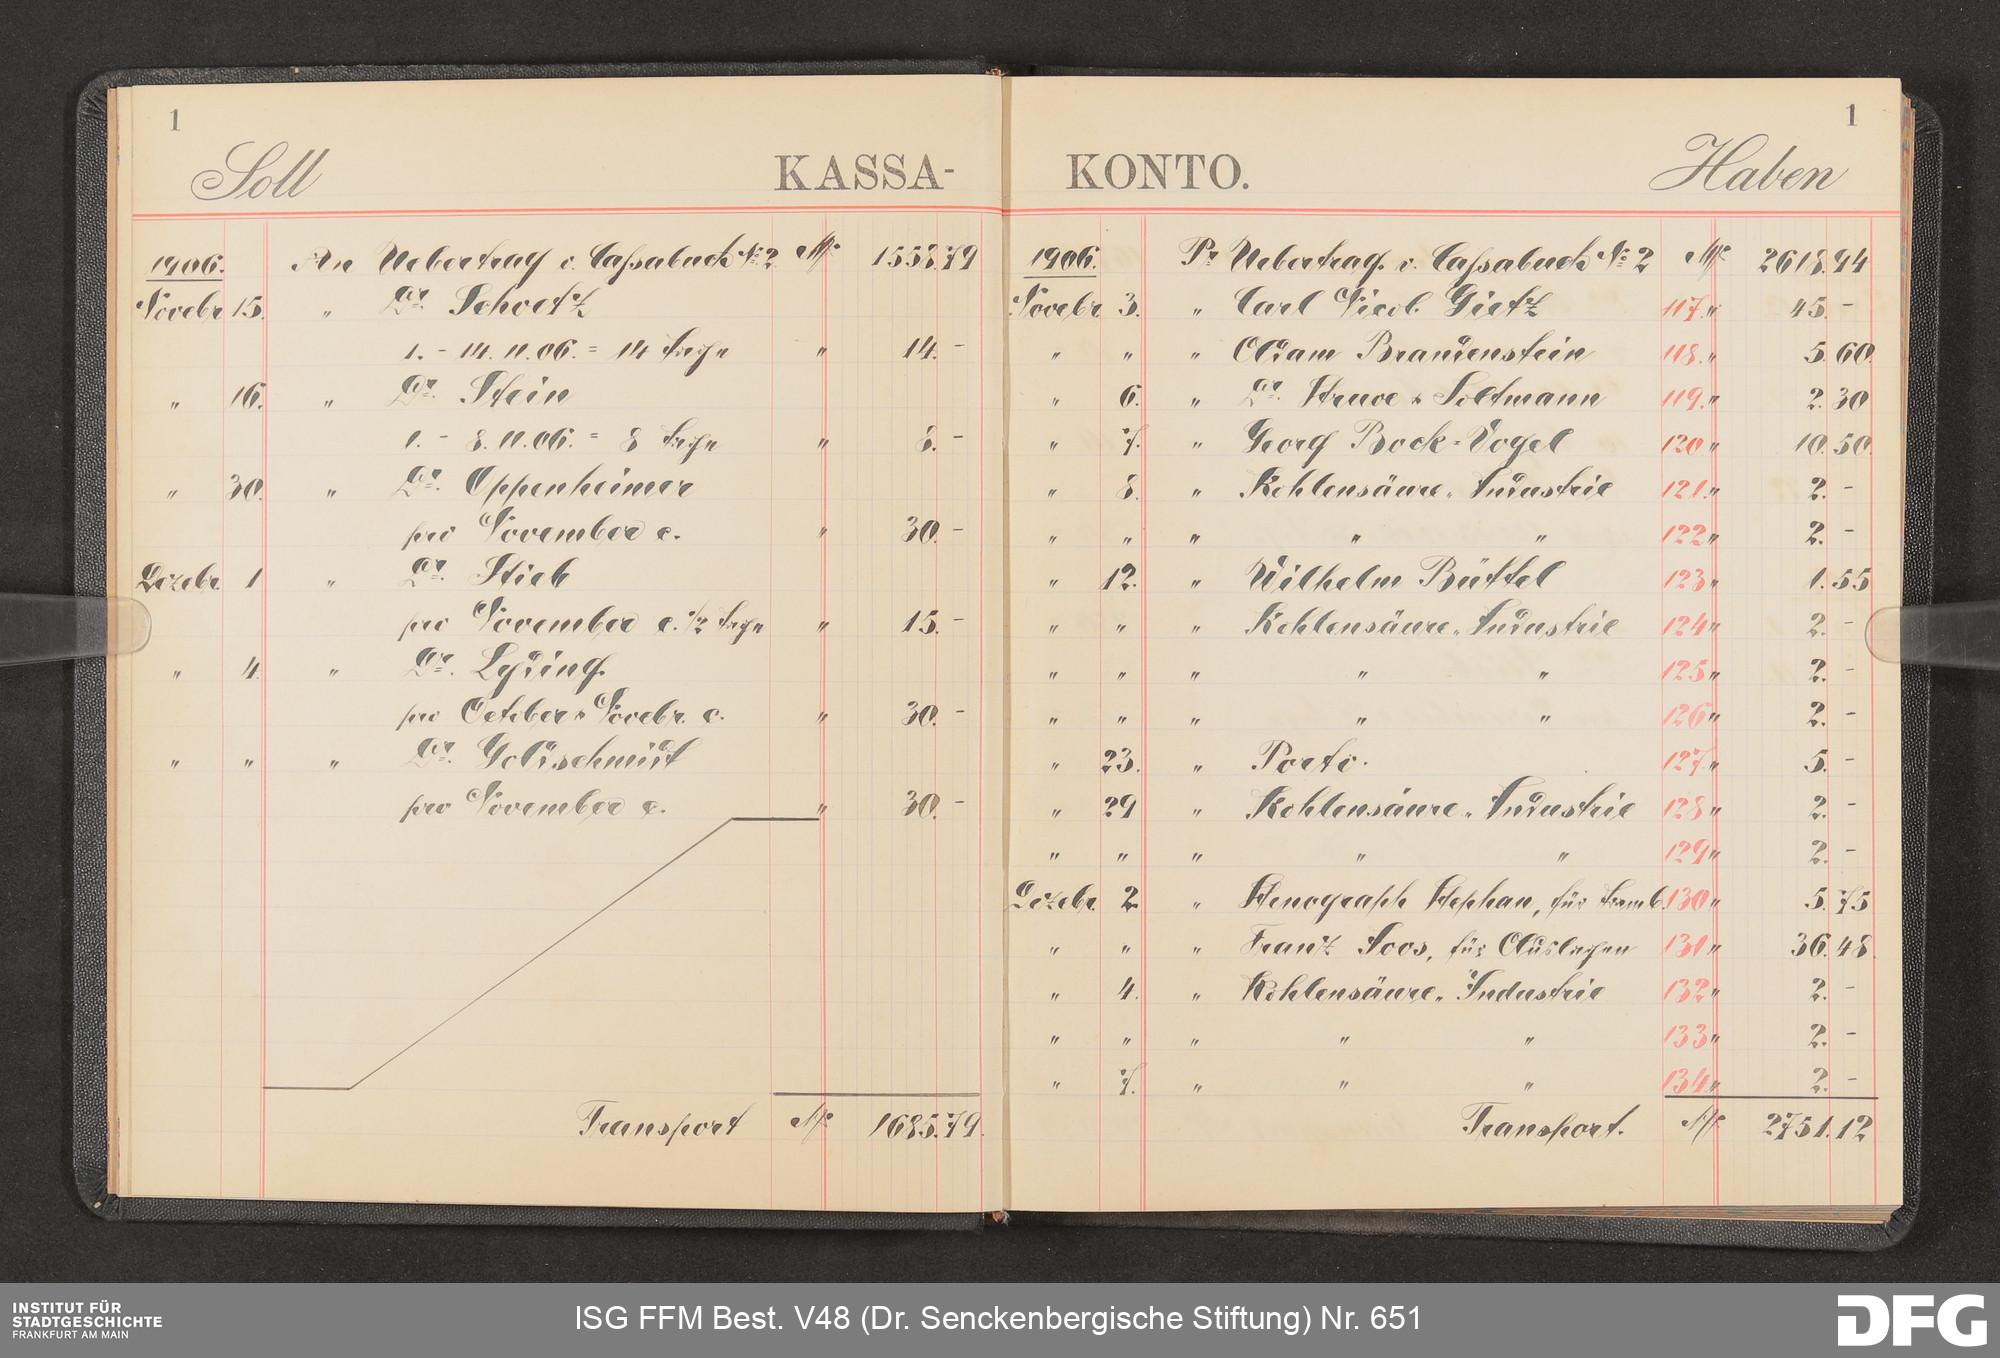 1
Soll KASSA-
1906. An Uebertrag v. Cassabuch № 2 M 1558.79
Novebr 15. " Dr. Schott
1. - 14. 11. 06. = 14 Tage " 14. -
" 16. " Dr. Stein
1. - 8. 11. 06. = 8 Tage " 8. -
" 30. " Dr. Oppenheimer
pro November c. " 30. -
Dezebr. 1 " Dr. Stieb
pro November c. 1/2 Tage " 15. -
" 4. " Dr. Lyding.
pro October & Novebr. c. " 30. -
" " " Dr. Goldschmidt
pro November c. " 30. -
Transport M 1685.79.
1
KONTO. Haben
1906. Pr Uebertrag. v. Cassabuch № 2 M 2618.94
Novebr 3. " Carl Nicol. Gietz 117. " 45. -
" " " Adam Brandenstein 118. " 5. 60.
" 6. " Dr. Struve & Soltmann 119. " 2. 30
" 7. " Georg Bock-Vogel 120 " 10. 50.
" 8. " Kohlensäure-Industrie 121. " 2. -
" " " " " 122 " 2. -
" 12. " Wilhelm Büttel 123 " 1. 55
" " " Kohlensäure-Industrie 124 " 2. -
" " " " " 125 " 2. -
" " " " " 126 " 2. -
" 23. " Porto. 127. " 5. -
" 29 " Kohlensäure-Industrie 128 " 2. -
" " " " " 129 " 2. -
Dezebr. 2 " Stenograph Stephan, für 130 " 5. 75
" " " Franz Soos, für Auslagen 131 " 36. 48.
" 4. " Kohlensäure-Industrie 132 " 2. -
" " " " " 133 " 2. -
" 7. " " " 134 " 2. -
Transport. M 2751.12
INSTITUT FÜR
STADTGESCHICHTE
FRANKFURT AM MAIN
ISG FFM Best. V48 (Dr. Senckenbergische Stiftung) Nr. 651
DFG